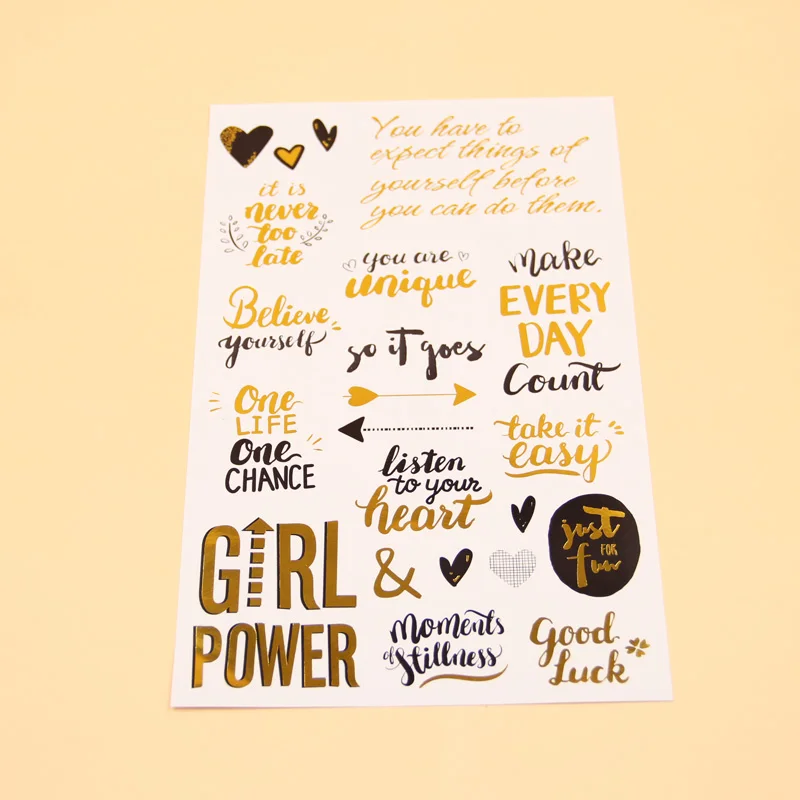 You have to
expect things of
yourself before
you can do them.
it is
never
too
late
you are
unique
make
EVERY
DAY
Count
Believe
yourself
so it goes
One
LIFE
One
CHANCE
take it
easy
listen
to your
heart
just
FOR
fun
GIRL
POWER
&
Moments
of Stillness
Good
Luck